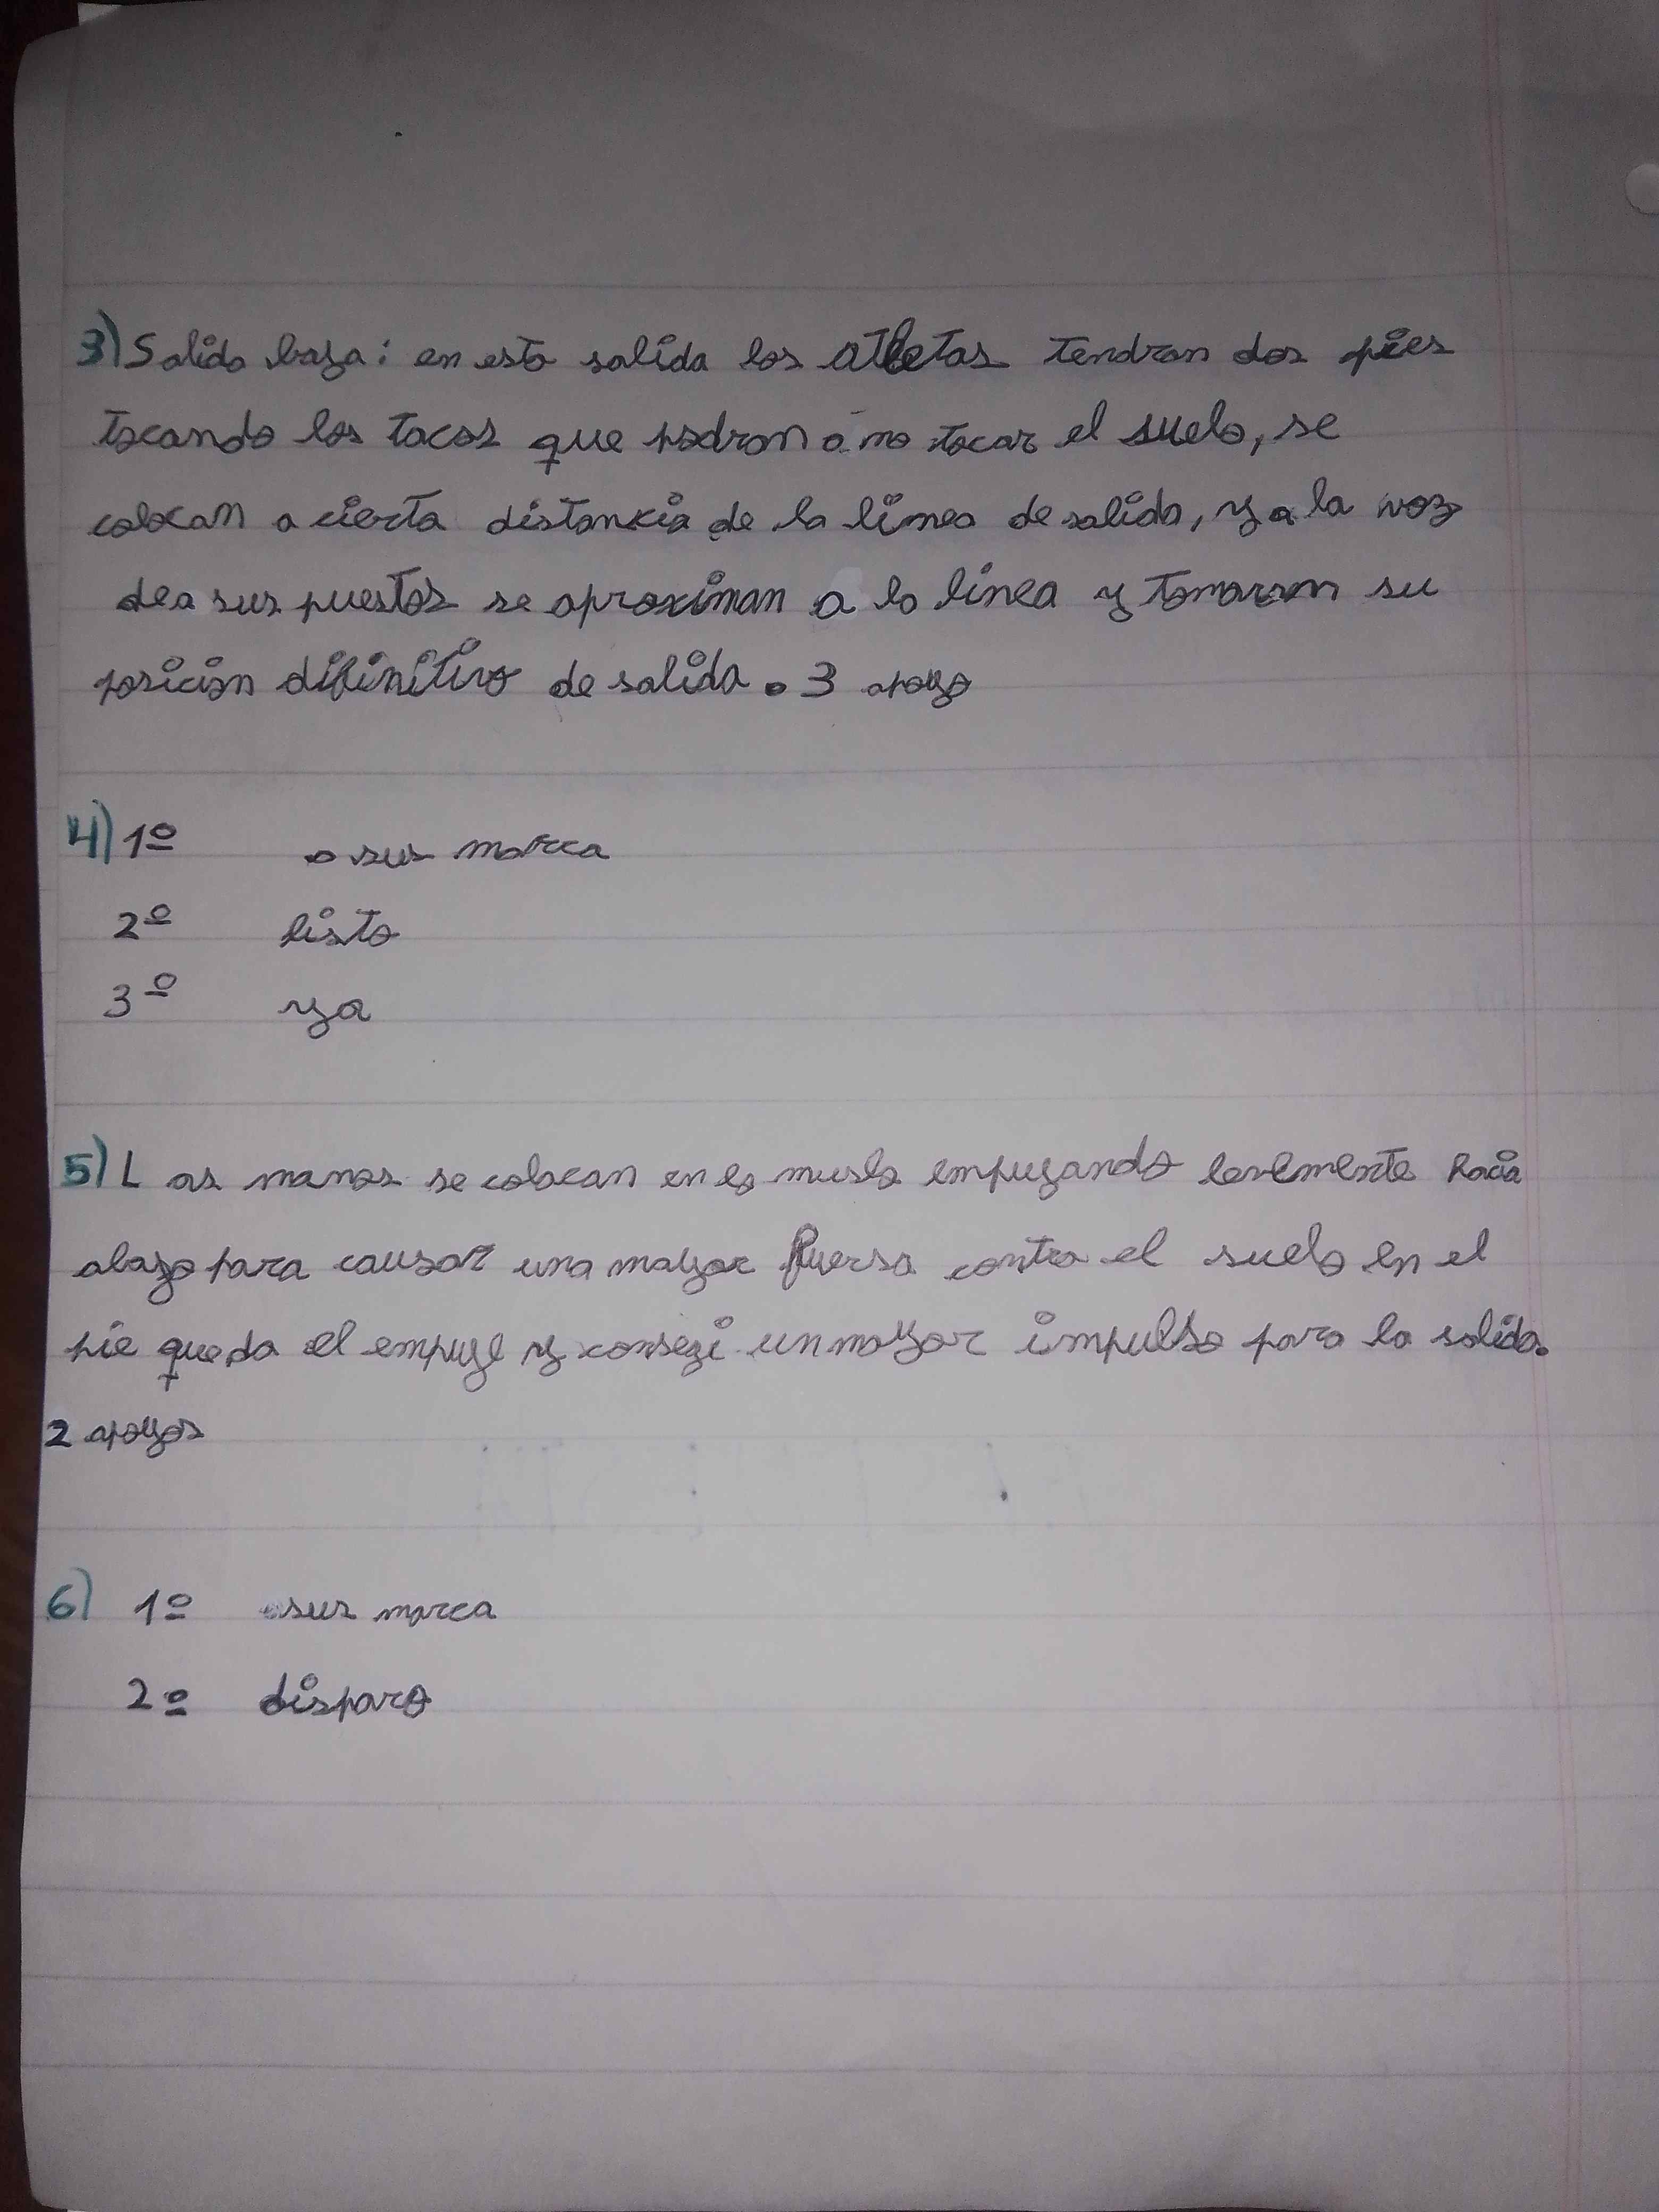 3) Salida baja: en esta salida los atletas tendran dos pies
tocando los tacos que podran o no tocar el suelo, se
colocan a cierta distancia de la linea de salida, y a la voz
de a sus puestos se aproximan a la linea y tomaran su
posicion difinitiva de salida. 3 apoyo
4) 1º a sus marca
2º listo
3º ya
5) Las manos se colocan en lo muslo empujando levemente hacia
abajo para causar una mayor fuersa contra el suelo en el
pie que da el empuje y consegi un mayor impulso para la salida.
2 apoyos
6) 1º a sus marca
2º disparo